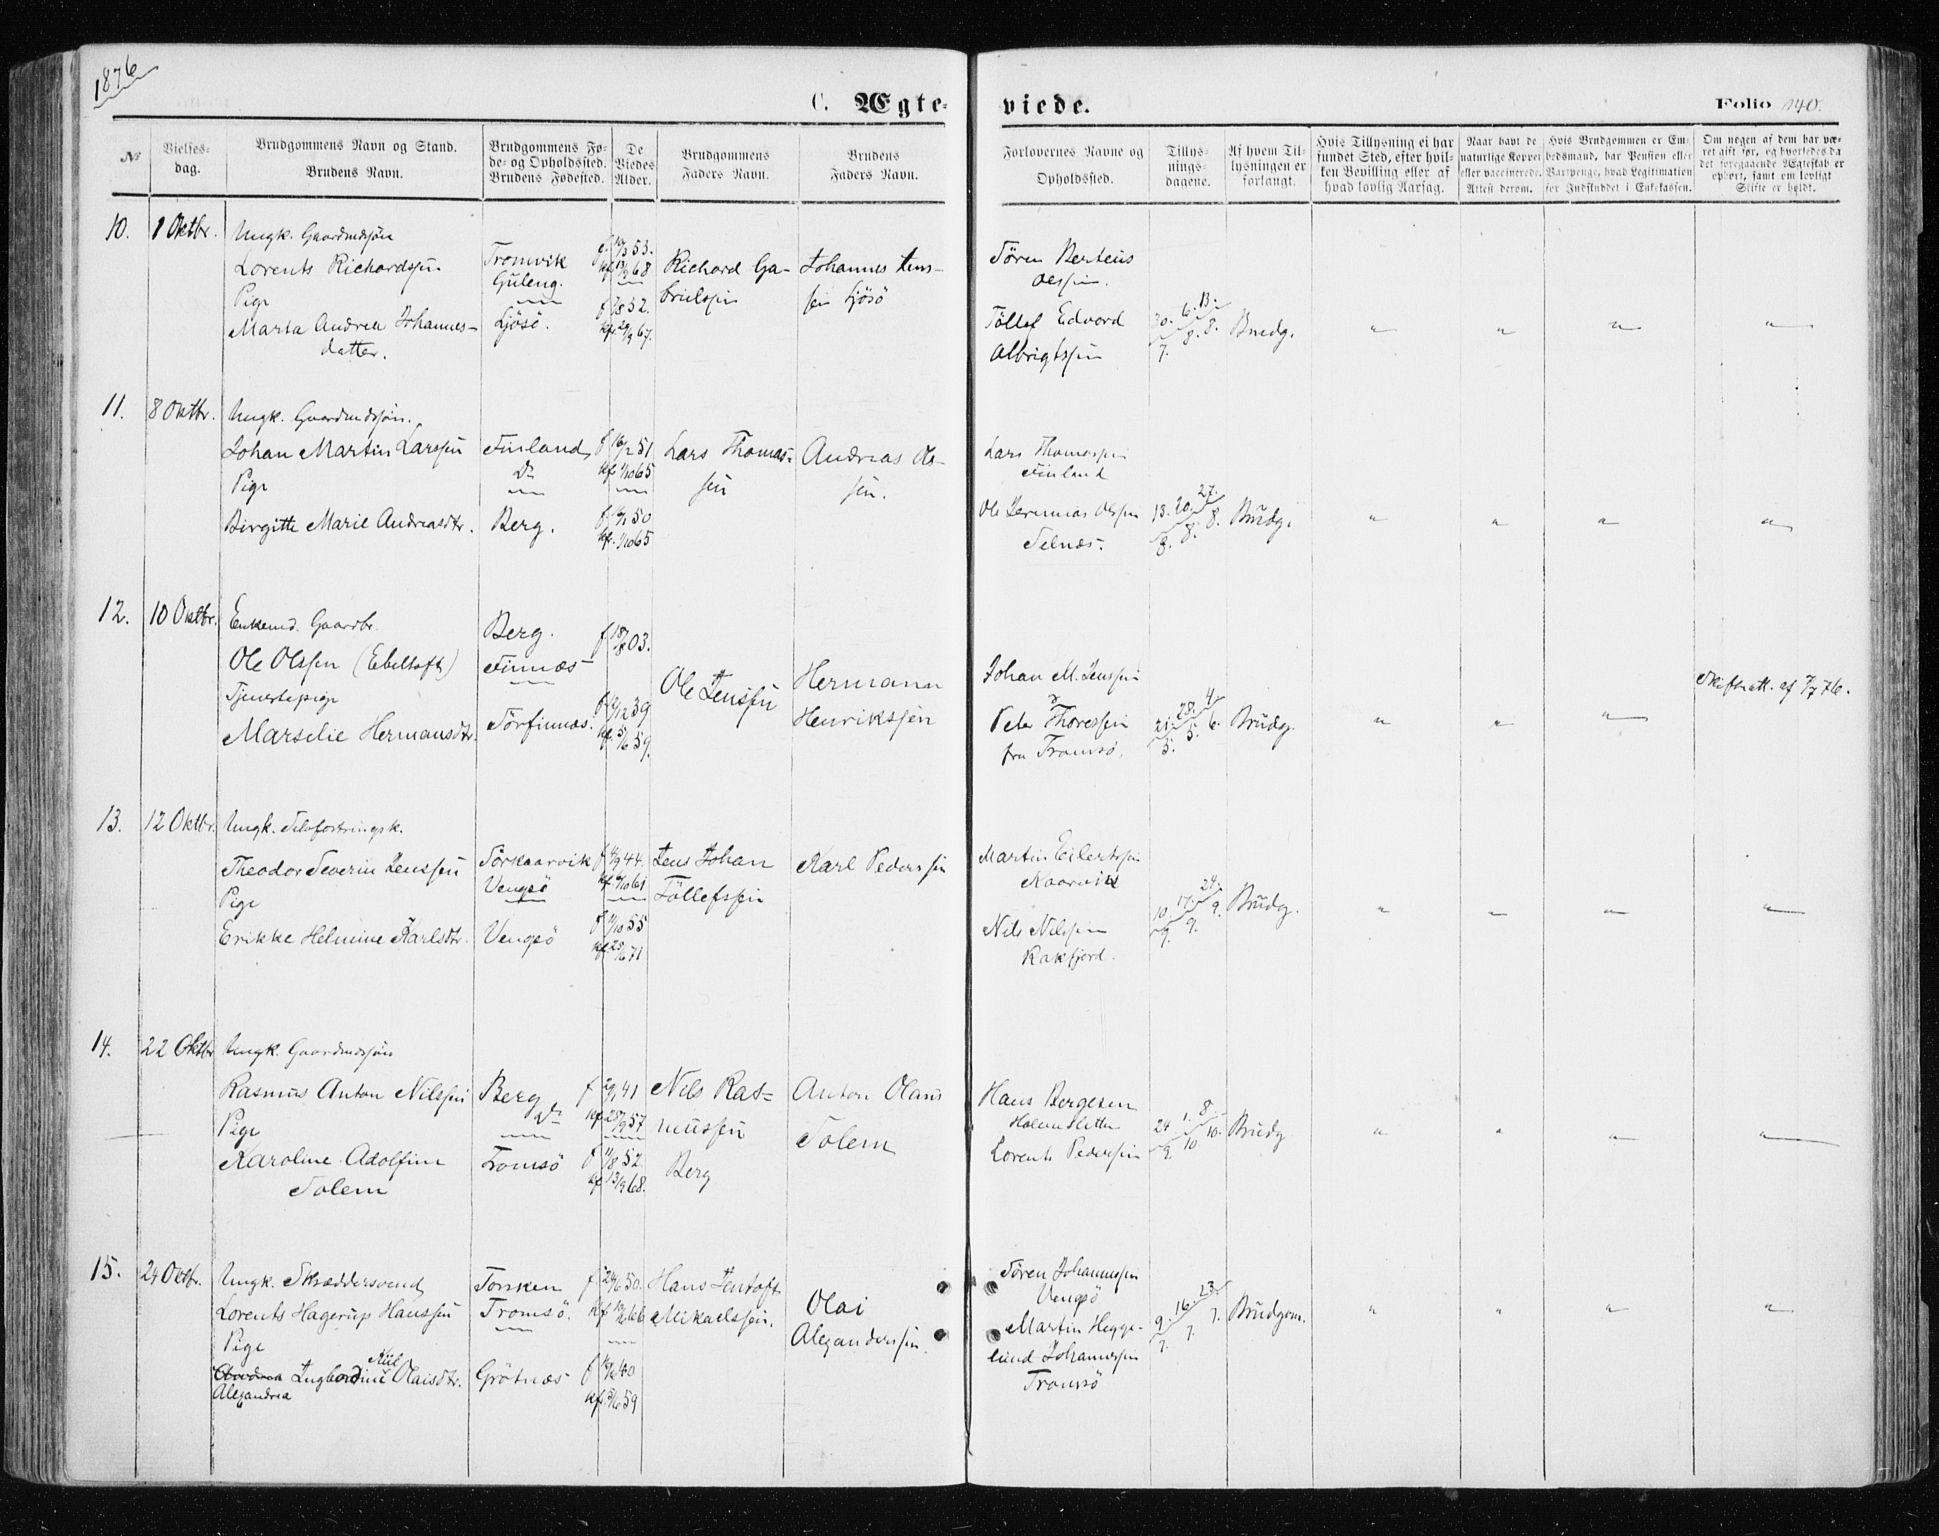 1876
C. Ægte-
viede.
Folio 140.
№
Vielses-
dag.
Brudgommens Navn og Stand.
Brudens Navn.
Brudgommens Fø-
de- og Opholdssted.
Brudens Fødested.
De
Viedes
Alder.
Brudgommens
Faders Navn.
Brudens
Faders Navn.
Forlovernes Navne og
Opholdssted.
Tillys-
nings-
dagene.
Af hvem Til-
lysningen er
forlangt.
Hvis Tillysning ei har
fundet Sted, efter hvil-
ken Bevilling eller af
hvad lovlig Aarsag.
Naar havt de
naturlige Kopper
eller vaccinerede.
Attest derom.
Hvis Brudgommen er Em-
bedsmand, har Pension eller
Vartpenge, hvad Legitimation
for Indskuddet i Enkekassen.
Om nogen af dem har væ-
ret gift før, og hvorledes da
det foregaaende Ægteskab er
ophørt, samt om lovligt
Skifte er holdt.
10.
1 Oktbr.
Ungk. Gaardmdsjøn
Lorents Richardsen
Pige
Marta Andrea Johannes-
datter.
Tromvik
Guleng.
Ljøsø.
Richard Ga-
brielsen
Johannes Jens-
sen Ljøsø
Søren Berteus
Olssen.
Tøllef Edvard
Albrigtsen
30. 6. 13.
7. 8. 8.
Brudg.
11.
8 Oktbr.
Ungk. Gaardmdsjøn.
Johan Martin Larssen
Pige
Birgitte Marie Andreasdtr.
Finland
Do
Berg.
f 16/12 51
kf 1/10 65
kf. 1/10 65
Lars Thomas-
sen
Andreas Ols-
sen.
Lars Thomassen
Finland
Ole Jeremias Olssen
Selnæs.
13. 20. 27.
8. 8. 8.
Brudg.
12.
10 Oktbr.
Enkemd. Gaardbr.
Ole Olssen (Ebeltoft)
Tjenestepige
Marselie Hermansdtr.
Berg.
Finnæs
Torfinnæs.
f 18/8 03.
Ole Jenssen
Hermann
Henrikssen
Johan M. Jenssen
Peter Thoressen
fra Tromsø.
21. 28. 4.
5. 5. 6.
Brudg.
Skifteatt. af 7/7 76.
13.
12 Oktbr.
Ungk. Selvforsringsk.
Theodor Severin Jenssen
Pige
Erikke Helmine Karlsdtr.
Sørkaarvik
Vengsø
Vengsø
Jens Johan
Tøllefssen
Karl Pederssen
Martin Eilertssen
Kaarvik
Nils Nilssen
Kakfjord.
10. 17. 24.
9. 9. 9.
Brudg.
14.
22 Oktbr
Ungk. Gaardmdsjøn
Rasmus Anton Nilssen
Pige
Karoline Adolfine
Solem
Berg
Do
Tromsø
f 11/8 52.
kf 13/9 68.
Nils Ras-
mussen
Berg
Anton Olaus
Solem
Hans Bergesen
Holmesletten
Lorents Pederssen
24. 1. 8.
9. 10. 10.
Brudg
15.
24 Oktbr.
Ungk. Skræddersvend
Lorents Hagerup Hanssen
Pige
Alexandrea Ingbordine Kiil Olaisdtr.
Torsken
Tromsø.
Grøtnæs
f 24/6 50.
Hans Jentoft
Mikaelssen.
Olai
Alexanderssen.
Søren Johannessen
Vengsø
Martin Hegge-
lund Johannessen
Tromsø
9. 16. 23.
7. 7. 7.
Brudgom.